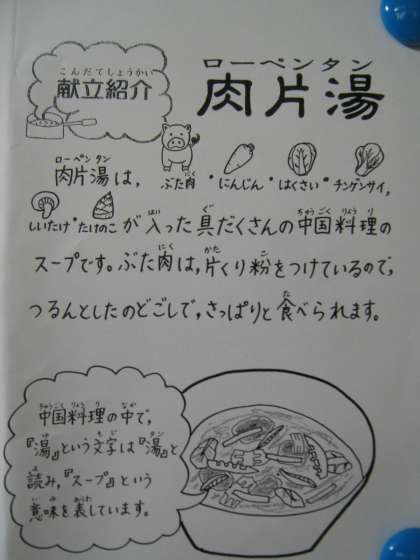 こんだてしょうかい
献立紹介
ローペンタン
肉片湯
ローペンタン
肉片湯は、ぶた肉・にんじん・はくさい・チンゲンサイ、
しいたけ・たけのこが入った具だくさんの中国料理の
スープです。ぶた肉は、片くり粉をつけているので、
つるんとしたのどごしで、さっぱりと食べられます。
中国料理の中で、
『湯』という文字は『湯』と
読み、『スープ』という
意味を表しています。